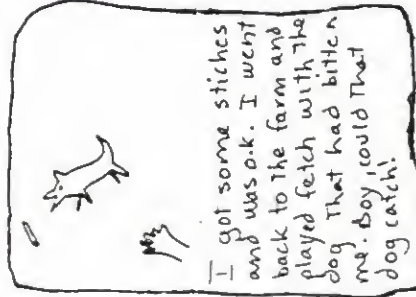 I got some stiches
and was o.k. I went
back to the farm and
played fetch with the
dog That had bitten
me. Boy, could That
dog catch!